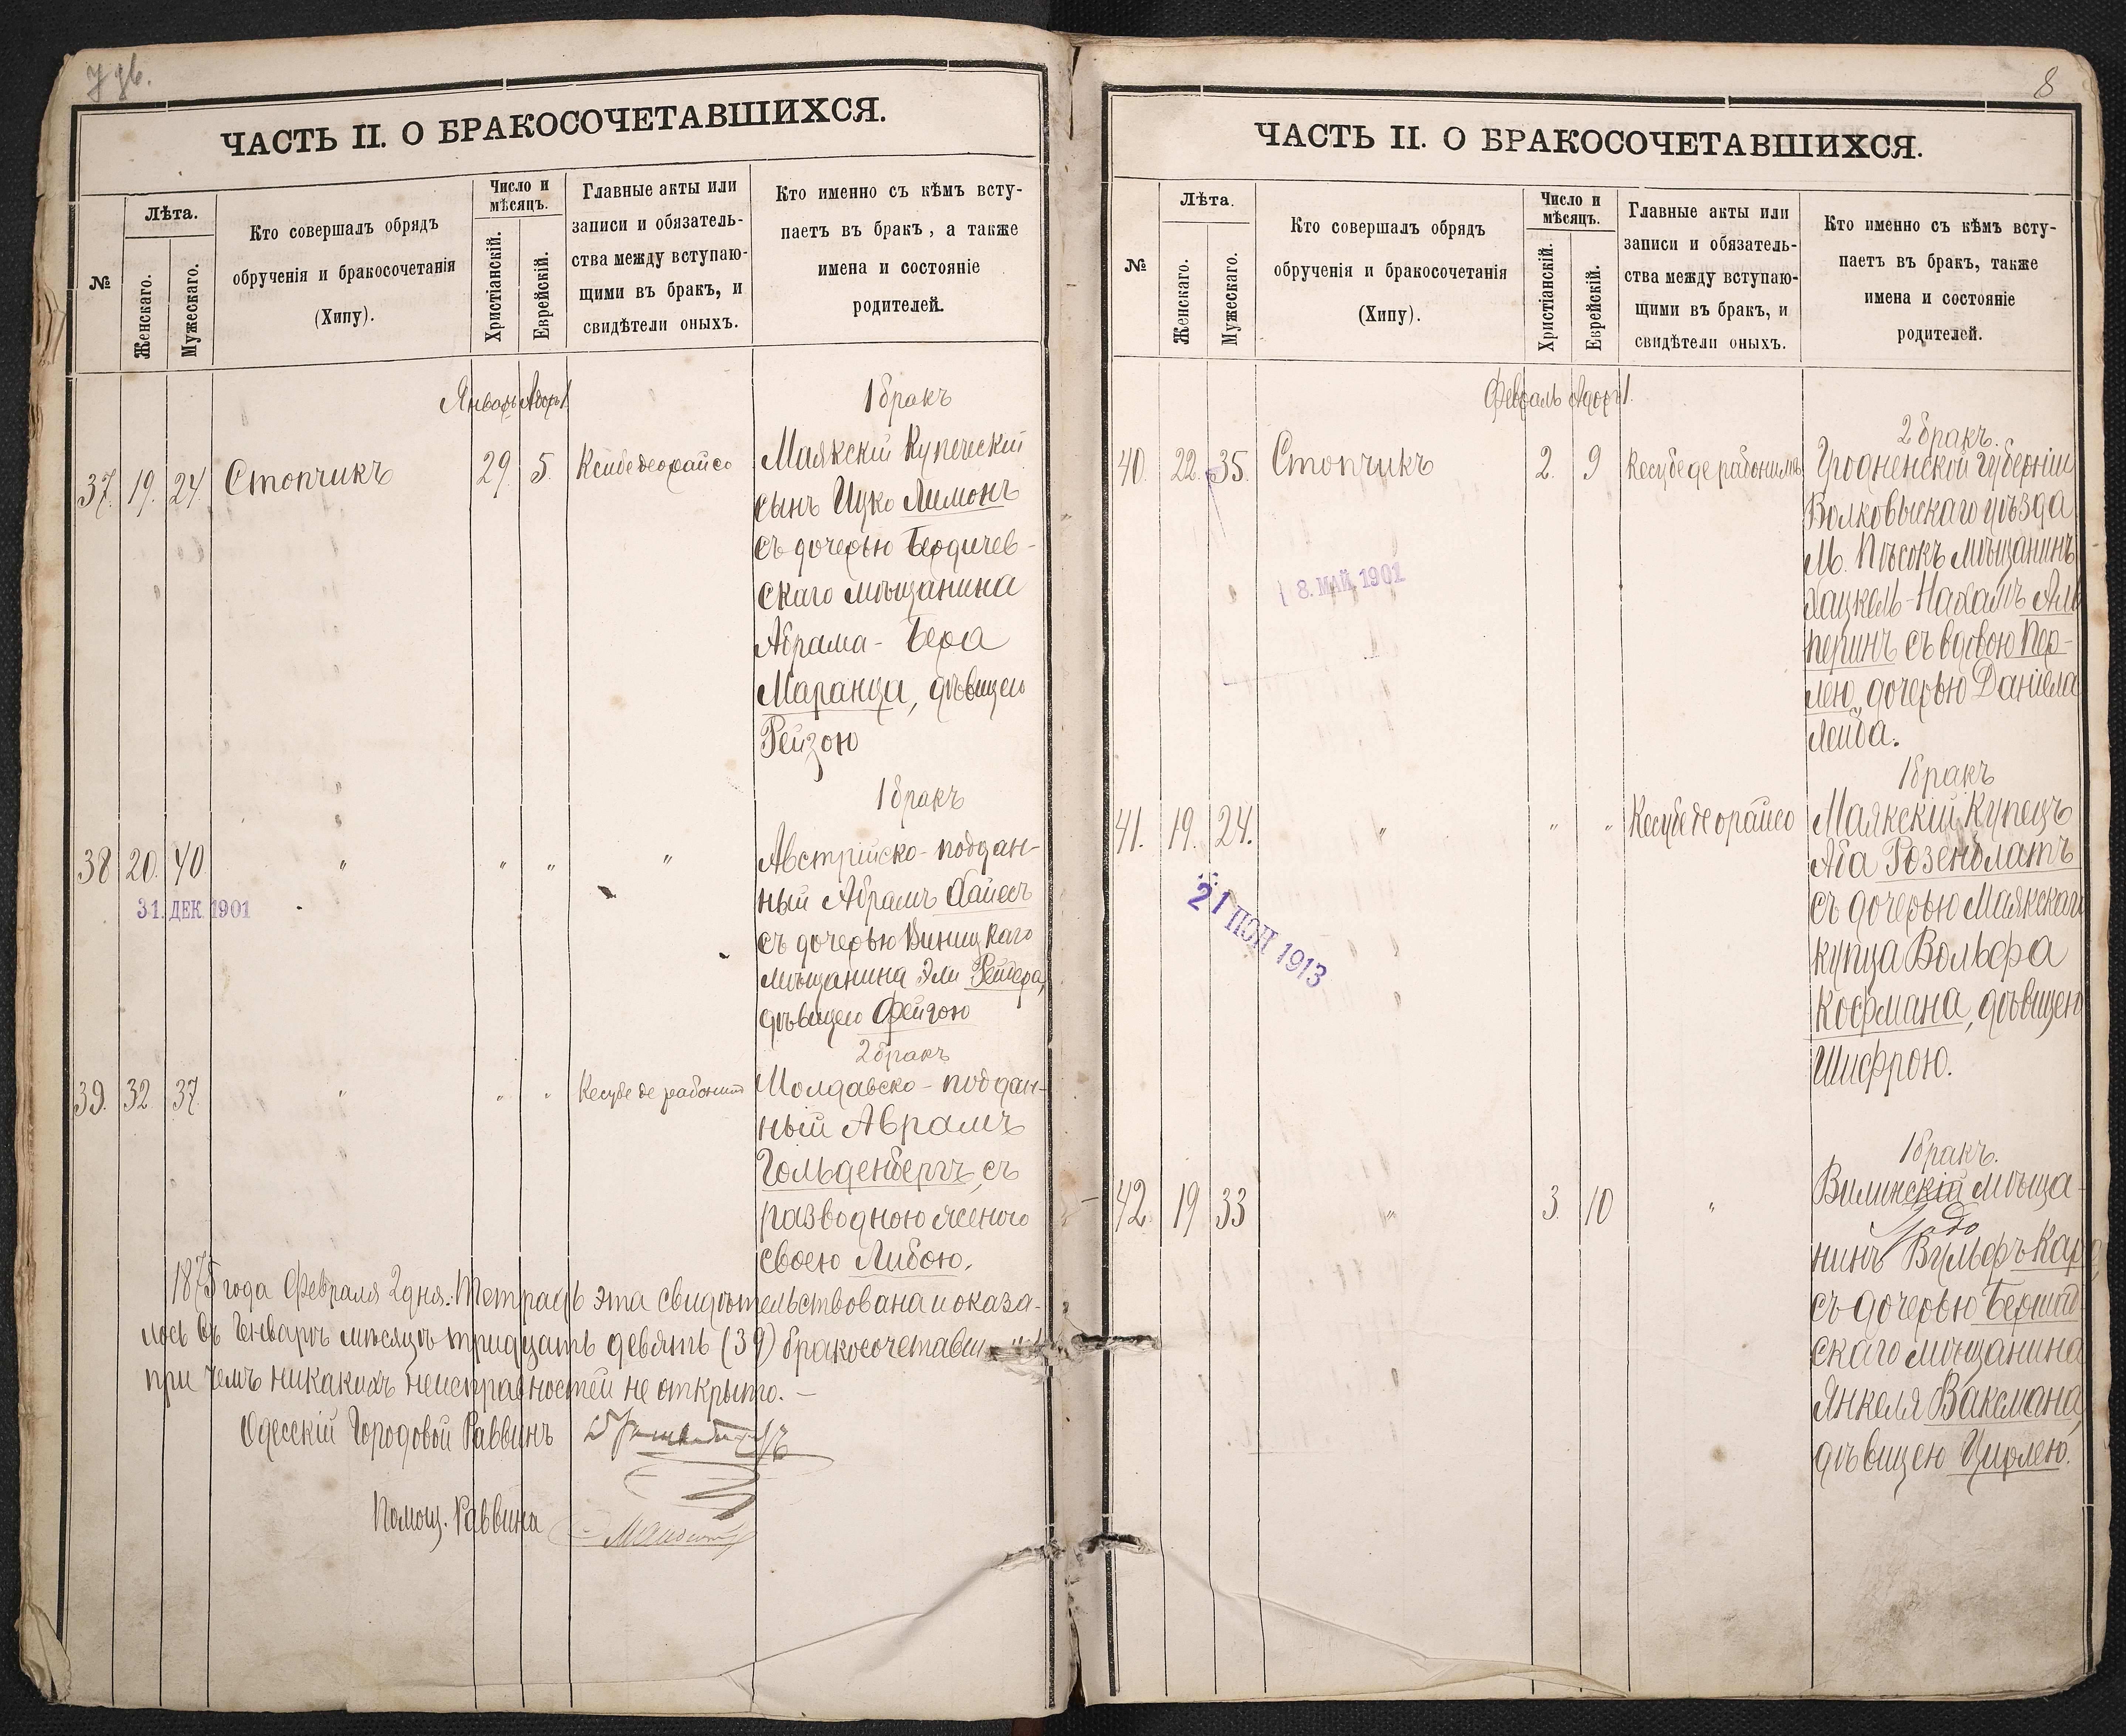 ЧАСТЬ II. О БРАКОСОЧЕТАВШИХСЯ.
№
Лѣта.
Женскаго.
Мужескаго.
Кто совершалъ обрядъ
обрученія и бракосочетанія
(Хипу).
Число и
мѣсяцъ.
Христіанскій.
Еврейскій.
Главные акты или
записи и обязатель-
ства между вступаю-
щими въ бракъ, и
свидѣтели оныхъ.
Кто именно съ кѣмъ всту-
паетъ въ бракъ, а также
имена и состояніе
родителей.
Январь Адоръ 1
1 бракъ
37. 19. 24. Стопчикъ 29. 5.
Маякскій Купеческій
сынъ Ицко Лимонъ
съ дочерью Бердичев-
скаго мѣщанина
Абрама - Бера
Маранца, дѣвицею
Рейзою
1 бракъ
38 20. 40 " " " "
31. ДЕК. 1901
Австрійско - поддан-
ный Абрамъ Хайесъ
съ дочерью Виницкаго
мѣщанина Эли
дѣвицею Фейгою
2 бракъ
39. 32. 37. " " " Кесубе де рабонит
Молдавско - поддан-
ный Аврамъ
Гольденбергъ, съ
разводною женою
своею Либою.
1875 года Февраля 2 дня. Тетрадь эта свидѣтельствована и оказа-
лось въ Генварѣ мѣсяцѣ тридцать девять (39)
при чемъ никакихъ неисправностей не открыто. -
Одесскій Городовой Раввинъ
Помощ. Раввина
8
ЧАСТЬ II. О БРАКОСОЧЕТАВШИХСЯ.
№
Лѣта.
Женскаго.
Мужескаго.
Кто совершалъ обрядъ
обрученія и бракосочетанія
(Хипу).
Число и
мѣсяцъ.
Христіанскій.
Еврейскій.
Главные акты или
записи и обязатель-
ства между вступаю-
щими въ бракъ, и
свидѣтели оныхъ.
Кто именно съ кѣмъ всту-
паетъ въ бракъ, также
имена и состояніе
родителей.
Февраль Адоръ 1.
2 бракъ.
40. 22. 35. Стопчикъ 2. 9
8. МАЙ 1901
Гродненской губерніи
Волковыскаго уѣзда
М. Пѣсокъ мѣщанинъ
Хацкель - Нахамъ Аль
перинъ съ вдовою Пер-
лею, дочерью Даніела
Лейба.
1 бракъ
41. 19. 24. " " " Кесубе де орайсо
Маякскій Купецъ
Аба Розенблатъ
съ дочерью Маякскаго
купца Вольфа
Кофмана, дѣвицею
Шифрою.
1913
1 бракъ.
42. 19 33 " 3. 10 "
Вилинскій мѣща-
нинъ Вульфъ
съ дочерью
скаго мѣщанина
Янкеля Ваксмана,
дѣвицею Цирлею.